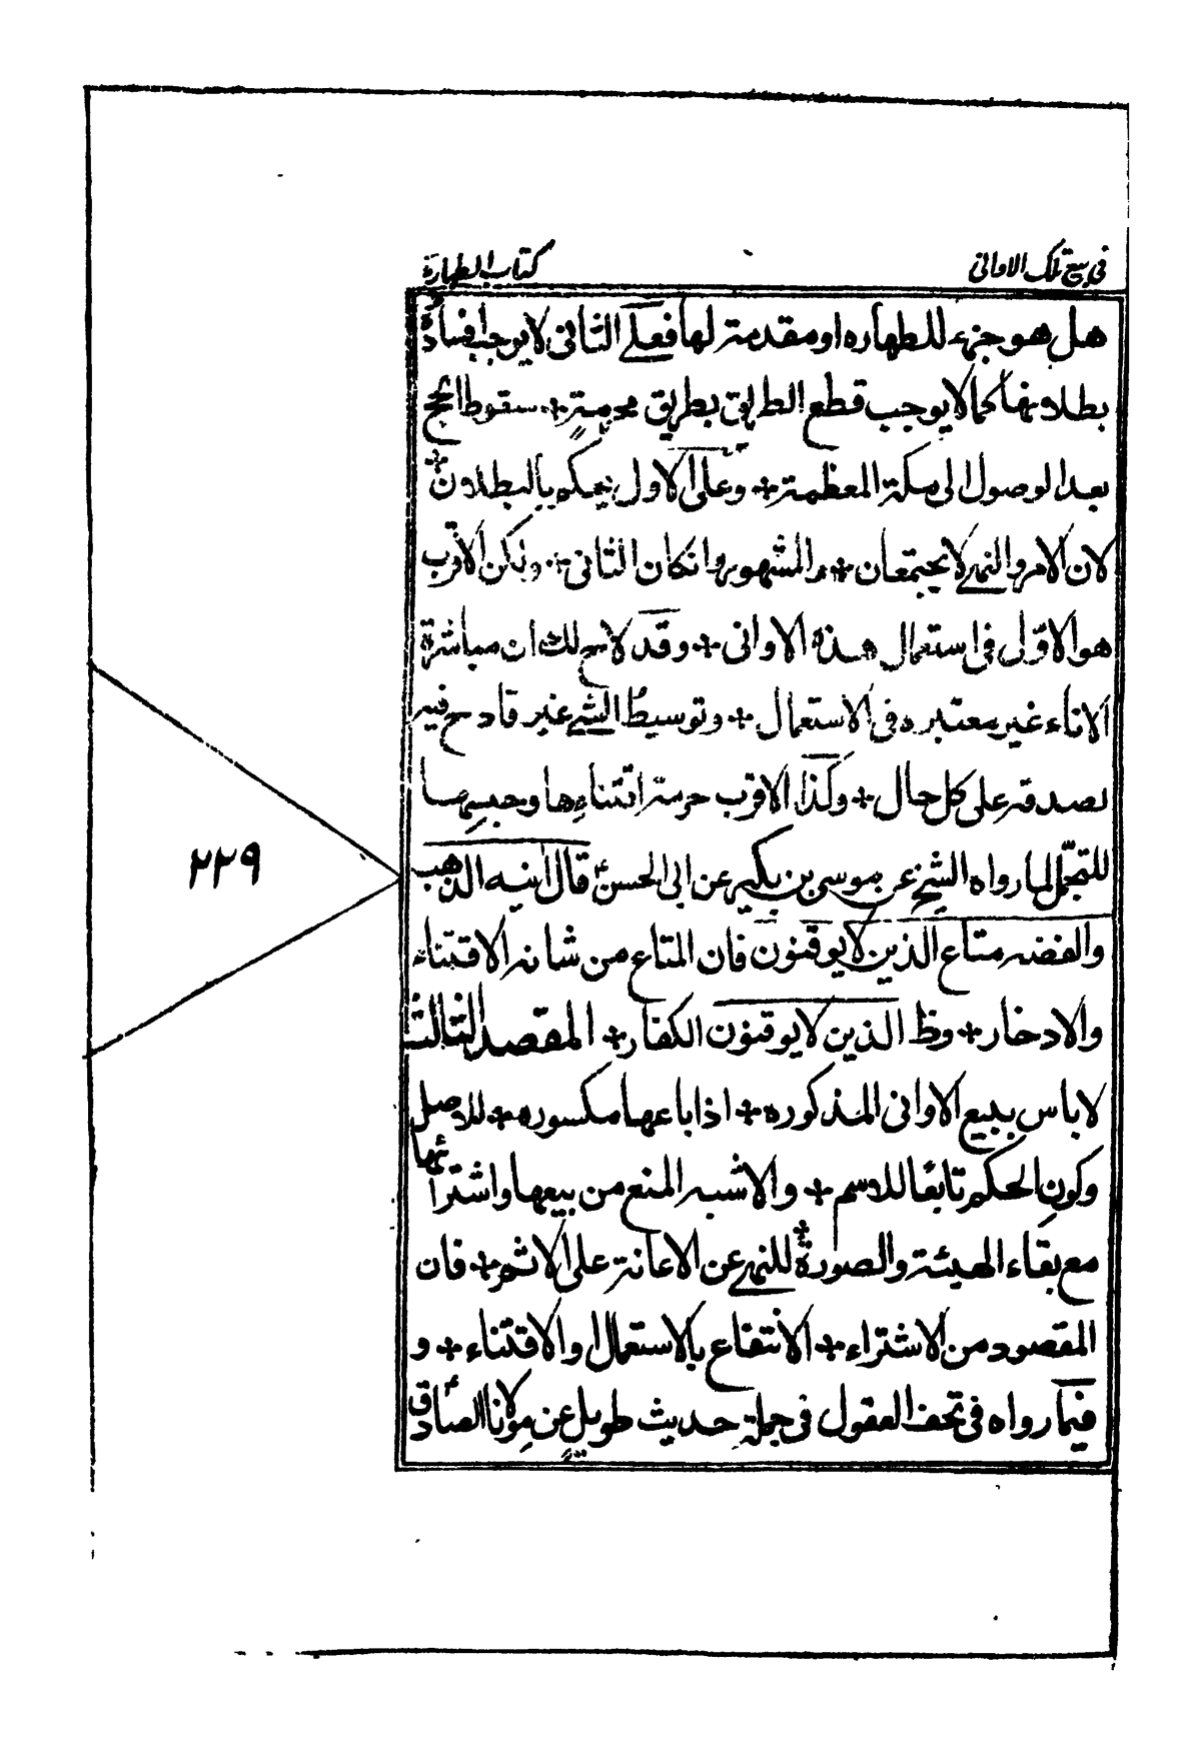 في بيع تلك الاواني
كتاب الطهارة
هل هو جزء للطهاره او مقدمة لها فعلى الثاني لا يوجب فساده
بطلانها كما لا يوجب قطع الطريق بطريق محرمة + سقوط الحج
بعد الوصول الى مكة المعظمة + وعلى الاول يحكم بالبطلان +
لان الامر والنهي لا يجتمعان + والمشهور وانكان الثاني + ولكن الاقرب
هو الاوّلى في استعمال هذه الاواني + وقد لاح لك ان مباشرة
الاناء غير معتبره في الاستعمال + وتوسيط الشئ غير قادح فيه
لصدقه على كل حال + وكذا الاقرب حرمة اقتنائها وحبسها
للتجمّل لما رواه الشيخ عن موسى بن بكير عن ابي الحسنؑ قال انيه الذهب
والفضه متاع الذين لا يوقنون فان المتاع من شانه الاقتناء
والادخار + وظ الذين لا يوقنون الكفار + المقصد الثالث
لا باس ببيع الاواني المذكوره + اذا باعها مكسوره + للاصل
وكون الحكم تابعًا للاسم + والاشبه المنع من بيعها واشترائها
مع بقاء الهيئة والصورة + للنهي عن الاعانة على الاثم + فان
المقصود من الاشتراء + الانتفاع بالاستعمال والاقتناء + و
فيما رواه في تحف العقول في جملة حديث طويل عن مولانا الصادقؑ
٢٢٩